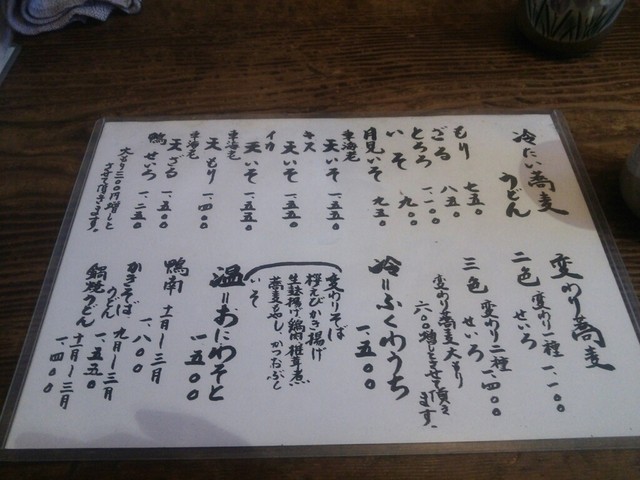 冷たい蕎麦
うどん
もり 七五〇
ざる 八五〇
とろろ 一、一〇〇
いそ 九〇〇
月見いそ 九五〇
車海老
天いそ 一、五五〇
キス
天いそ 一、五五〇
イカ
天いそ 一、五五〇
車海老
天もり 一、四〇〇
車海老
天ざる 一、五〇〇
鴨せいろ 一、二五〇
大もり三〇〇円増しと
させて頂きます。
変わり蕎麦
二色 変わり一種 一、一〇〇
せいろ
三色 変わり二種 一、四〇〇
せいろ
変わり蕎麦大もり
六〇〇増しとさせて頂き
ます。
冷=ふくわうち
一、五〇〇
変わりそば
桜えびかき揚げ
生麸揚げ鶏肉椎茸煮
蕎麦もやし、かつおぶし
いそ
温=おにわそと
一、五〇〇
鴨南 十一月〜三月
一、八〇〇
かきそば
うどん 九月〜三月
一、五五〇
鍋焼うどん 十一月〜三月
一、四〇〇